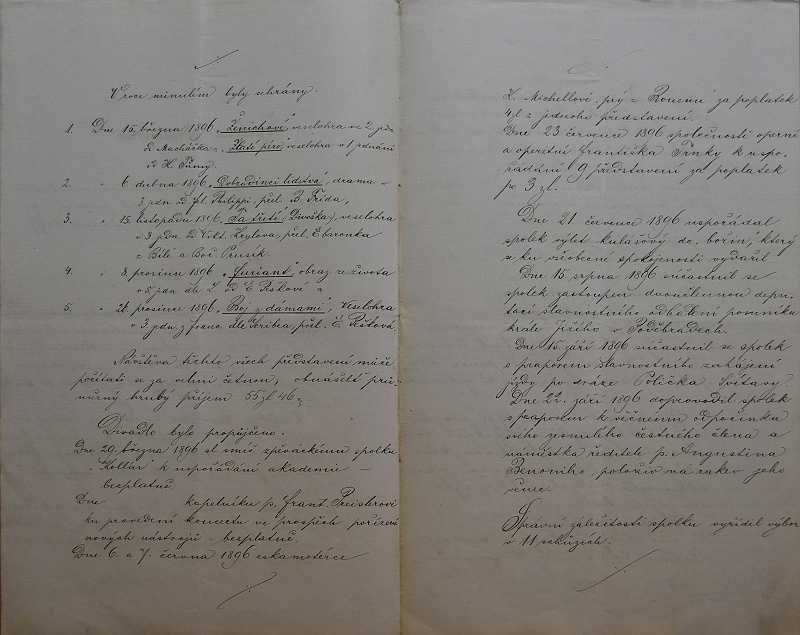 V roce minulém byly sehrány:
1. Dne 15. března 1896 „Ženichové“, veselohra ve 2. jedn.
od Macháčka a „Zlaté péro“, veselohra o 1 jednání
od H.
2. " 6. dubna 1896 „Dobrodinci lidstva“, drama o
3 jedn. od Philippi, přel. B. Frída,
3. " 15. listopadu 1896, „Ta třetí“ (Divoška), veselohra
v 3 jedn. od Vikt. Krylova, přel. Ebaronka
z Bíté a Boř. Prusík.
4. " 8. prosince 1896 „Furiant“, obraz ze života
v 5. jedn. dle L. od E. Peškové a
5. " 26. prosince 1896 „Boj s dámami“, Veselohra
v 3. jedn. z franc. dle Scribea, přel. E. Pešková.
Návštěva těchto všech představení může
počítati se za velmi četnou, obnášelť prů-
měrný hrubý příjem 55 zl 46
Divadlo bylo propůjčeno:
Dne 29. března 1896 sl. smíš. zpěváckému spolku
„Kollár“ k uspořádání akademie –
bezplatně.
Dne kapelníku p. Frant. Preislerovi
ku provedení koncertu ve prospěch pořízení
nových nástrojů – bezplatně.
Dne 6. a 7. června 1896 eskamotérce
H. Michellové, prý z Rouenu za poplatek
4 zl z jednoho představení.
Dne 23 července 1896 společnosti operní
a operetní Františka Trnky k uspo-
řádání 9 představení za poplatek
po 3 zl.
Dne 21. července 1896 uspořádal
spolek výlet kulašový do „bořin“, který
se ku všeobecné spokojenosti vydařil.
Dne 15. srpna 1896 súčastnil se
spolek zastoupen dvoučlennou depu-
tací slavnostního odhalení pomníku
krále Jiřího v Poděbradech.
Dne 15. září 1896 súčastnil se spolek
s praporem slavnostního zahájení
jízdy po dráze Polička Svitavy.
Dne 22. září 1896 doprovodil spolek
s praporem k věčnému odpočinku
svého zesnulého čestného člena a
náměstka ředitele p. Augustina
Benoniho, položiv na rakev jeho
věnec.
Správní záležitosti spolku vyřídil výbor
v 11 schůzích.